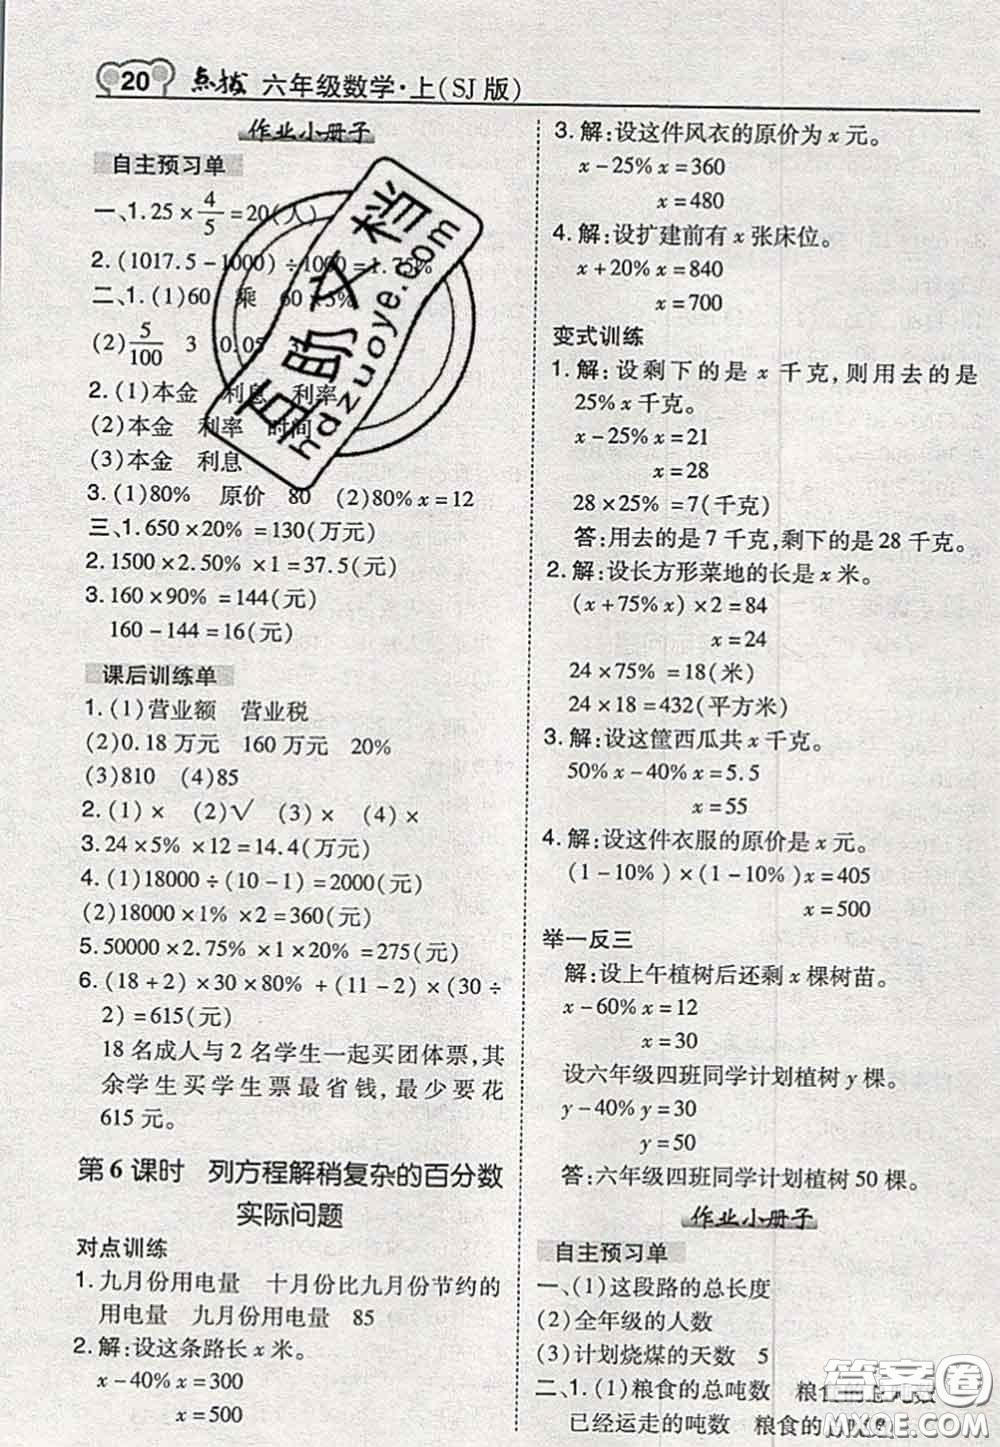 20 点拨 六年级数学·上(SJ版)
作业小册子
自主预习单
一、1. 25×4/5=20(人)
2. (1017.5-1000)÷1000=1.75%
二、1. (1)60 乘 60×5%
(2)5/100 3 0.05 3
2. (1)本金 利息 利率
(2)本金 利率 时间
(3)本金 利息
3. (1)80% 原价 80 (2)80%x=12
三、1. 650×20%=130(万元)
2. 1500×2.50%×1=37.5(元)
3. 160×90%=144(元)
160-144=16(元)
课后训练单
1. (1)营业额 营业税
(2)0.18万元 160万元 20%
(3)810 (4)85
2. (1)× (2)√ (3)× (4)×
3. 24×5%×12=14.4(万元)
4. (1)18000÷(10-1)=2000(元)
(2)18000×1%×2=360(元)
5. 50000×2.75%×1×20%=275(元)
6. (18+2)×30×80%+(11-2)×(30÷
2)=615(元)
18名成人与2名学生一起买团体票,其
余学生买学生票最省钱,最少要花
615元。
第6课时 列方程解稍复杂的百分数
实际问题
对点训练
1. 九月份用电量 十月份比九月份节约的
用电量 九月份用电量 85
2. 解:设这条路长x米。
x-40%x=300
x=500
3. 解:设这件风衣的原价为x元。
x-25%x=360
x=480
4. 解:设扩建前有x张床位。
x+20%x=840
x=700
变式训练
1. 解:设剩下的是x千克,则用去的是
25%x千克。
x-25%x=21
x=28
28×25%=7(千克)
答:用去的是7千克,剩下的是28千克。
2. 解:设长方形菜地的长是x米。
(x+75%x)×2=84
x=24
24×75%=18(米)
24×18=432(平方米)
3. 解:设这筐西瓜共x千克。
50%x-40%x=5.5
x=55
4. 解:设这件衣服的原价是x元。
(1-10%)×(1-10%)x=405
x=500
举一反三
解:设上午植树后还剩x棵树苗。
x-60%x=12
x=30
设六年级四班同学计划植树y棵。
y-40%y=30
y=50
答:六年级四班同学计划植树50棵。
作业小册子
自主预习单
一、(1)这段路的总长度
(2)全年级的人数
(3)计划烧煤的天数 5
二、1. (1)粮食的总吨数 粮食的总吨数
已经运走的吨数 粮食的总吨数
互助文档
hdzuoye.com
答案圈